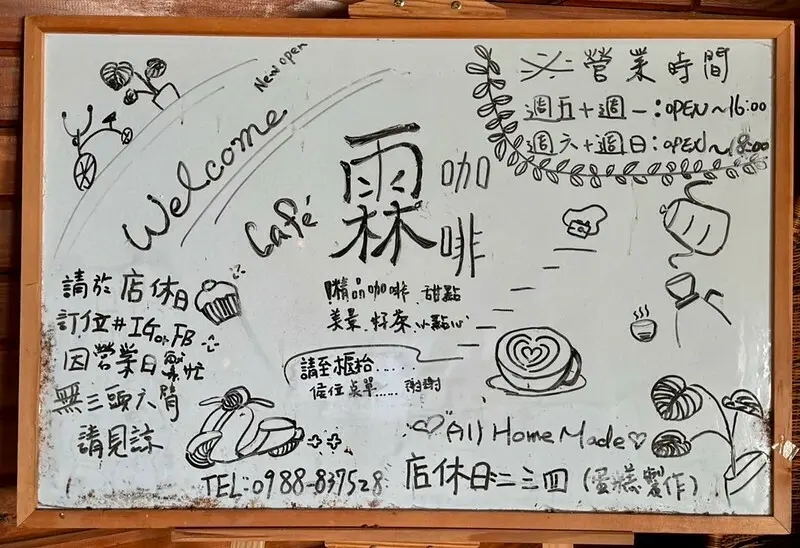 New open
Welcome
Café
霖 咖啡
※營業時間
週五+週一:OPEN~16:00
週六+週日:OPEN~18:00
精品咖啡 甜點
美景 好茶 小點心
請至櫃枱......
候位桌單......謝謝
請於店休日
訂位#IG or FB
因營業日繁忙
無三頭六臂
請見諒
"All Home Made
TEL:0988-837528
店休日二三四(蛋糕製作)